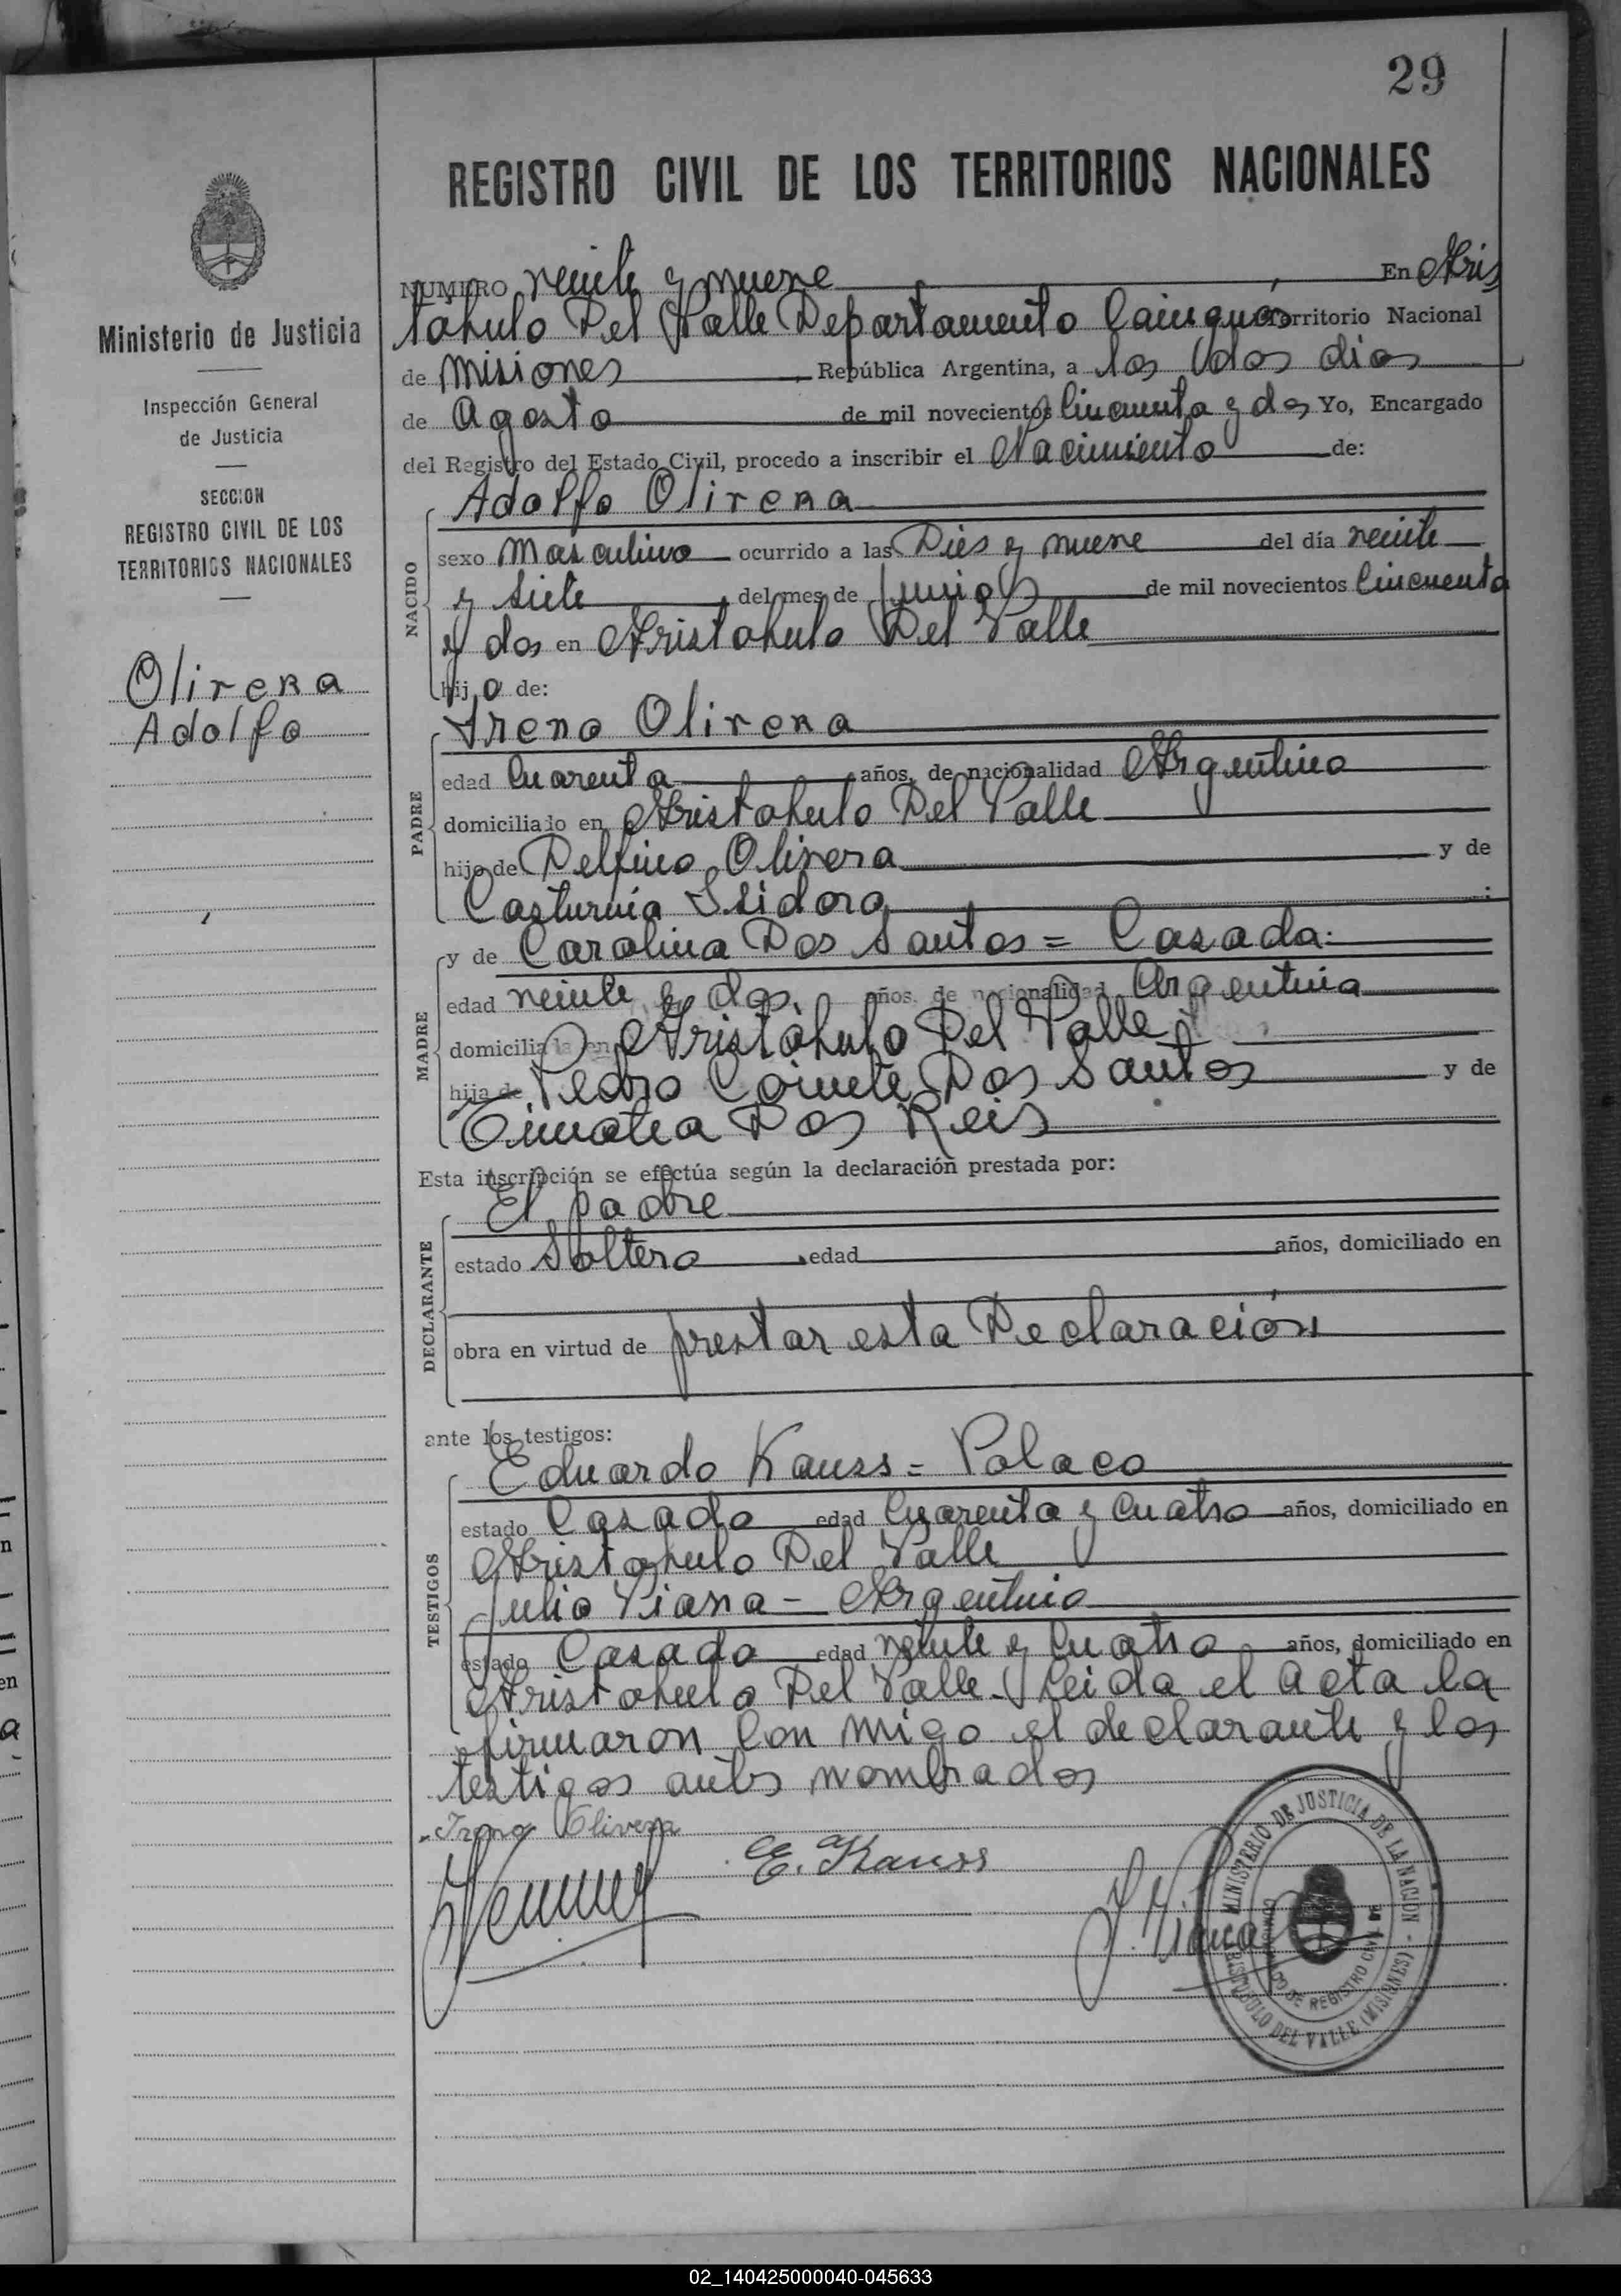 29
REGISTRO CIVIL DE LOS TERRITORIOS NACIONALES
Ministerio de Justicia
Inspección General
de Justicia
SECCION
REGISTRO CIVIL DE LOS
TERRITORIOS NACIONALES
Olivera
Adolfo
NUMERO veinte y nueve En Aris
tobulo Del Valle Departamento Cainguás Territorio Nacional
de Misiones República Argentina, a los dos dias
de Agosto de mil novecientos Cincuenta y dos Yo, Encargado
del Registro del Estado Civil, procedo a inscribir el Nacimiento de:
NACIDO
Adolfo Olivera
sexo Masculino ocurrido a las Dies y nueve del día veinte
y siete del mes de Junio de mil novecientos Cincuenta
y dos en Aristobulo Del Valle
hijo de:
PADRE
Ireno Olivera
edad Cuarenta años, de nacionalidad Argentino
domiciliado en Aristobulo Del Valle
hijo de Delfino Olivera y de
Casturnia Isidora
MADRE
y de Carolina Dos Santos = Casada:
edad veinte y dos, años, de nacionalidad Argentina
domiciliada en Aristobulo Del Valle
hija de Pedro Dos Santos y de
Dos Reis
Esta inscripción se efectúa según la declaración prestada por:
DECLARANTE
El padre
estado Soltero edad años, domiciliado en
obra en virtud de prestar esta Declaración
ante los testigos:
TESTIGOS
Eduardo Kauss = Polaco
estado Casado edad Cuarenta y Cuatro años, domiciliado en
Aristobulo Del Valle
Julio Viana - Argentino
estado Casado edad veinte y Cuatro años, domiciliado en
Aristobulo Del Valle - Leida el Acta la
firmaron Con migo el declarante y los
testigos antes nombrados
Ireno Olivera
E. Kauss
J. Viana
MINISTERIO DE JUSTICIA DE LA NACION
DE REGISTRO CIVIL
ARISTOBULO DEL VALLE (MISIONES)
02_140425000040-045633